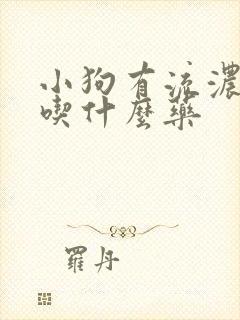 小狗有流濃
喫什麼藥
羅丹